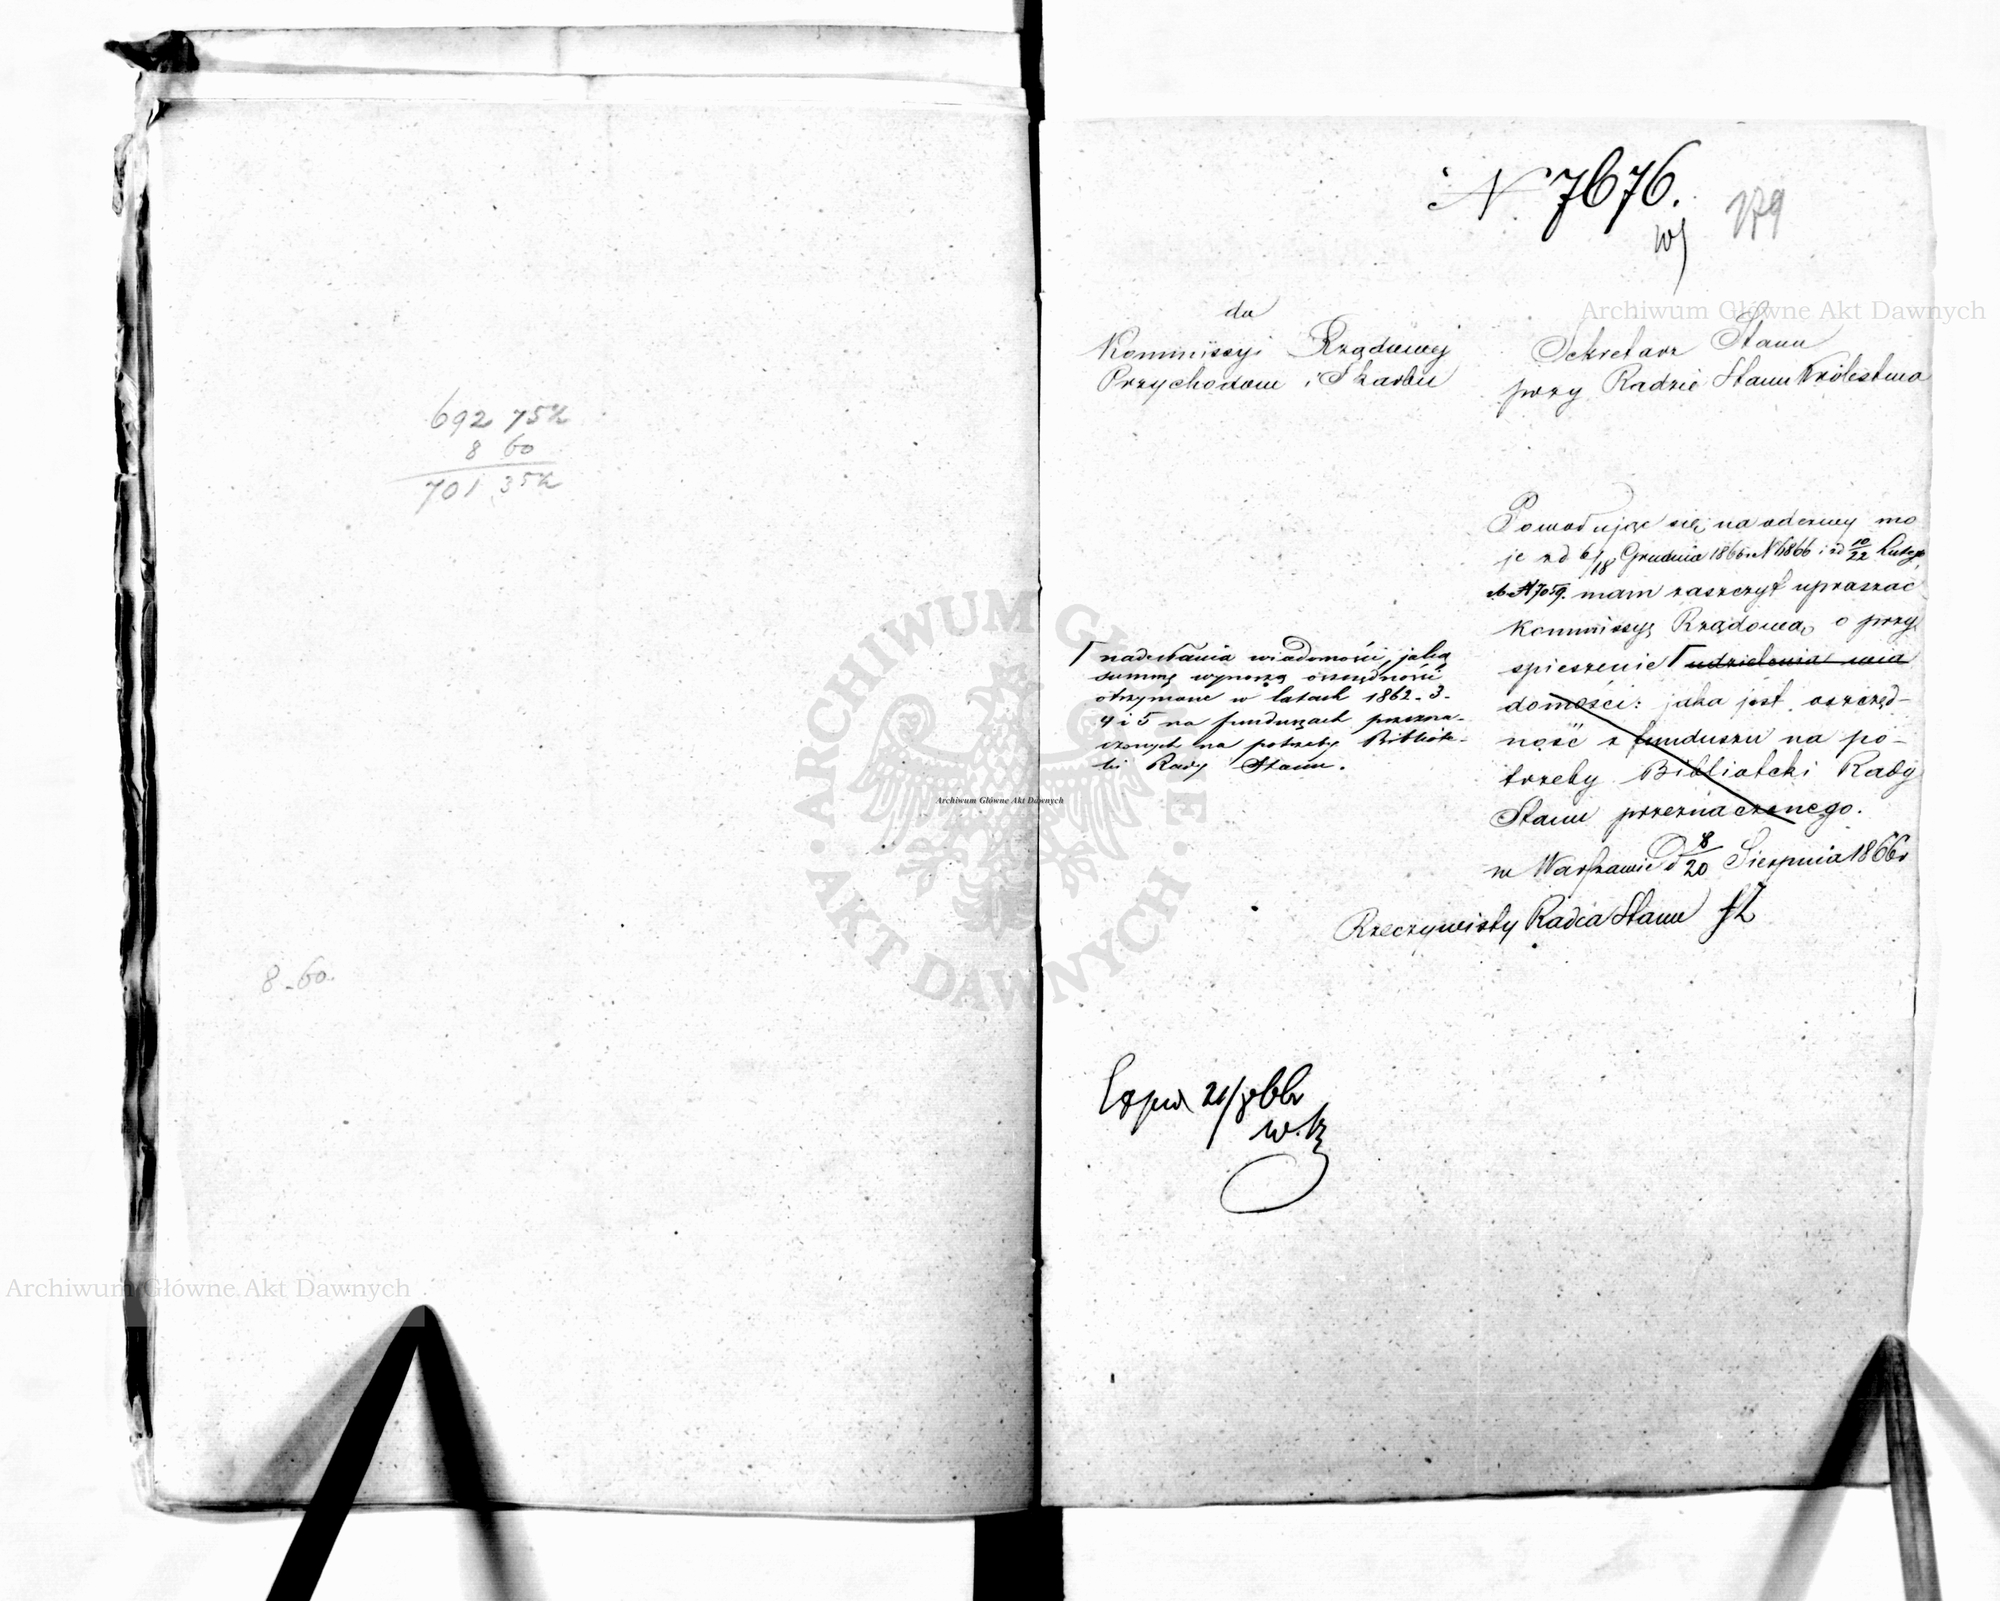 692 75½
8 60
701 35½
8-60.
N 7676.
179
do
Kommissyi Rządowej
Przychodow i Skarbu
Sekretarz Stanu
przy Radzie Stanu Królestwa
Powodując się na odezwy mo
je z d 6/18 Grudnia 1866 r. N 6866 i zd 10/22 Lutego
N 7059. mam zaszczyt upraszać
Kommissyę Rządową o przy
spieszenie Γ udzielenia wia
domości: jaka jest oszczęd-
ność z funduszu na po-
trzeby Biblioteki Rady
Stanu przeznaczonego.
w Warszawie d 8/20 Sierpnia 1866 r
Rzeczywisty Radca Stanu
Γ nadesłania wiadomości, jaką
summę wynoszą oszczędności
otrzymane w latach 1862-3-
4 i 5 na funduszach przezna-
czonych na potrzeby Bibliote-
ki Rady Stanu.
21/8 66 r
Archiwum Główne Akt Dawnych
ARCHIWUM GŁÓWNE · AKT DAWNYCH ·
Archiwum Główne Akt Dawnych
Archiwum Główne Akt Dawnych